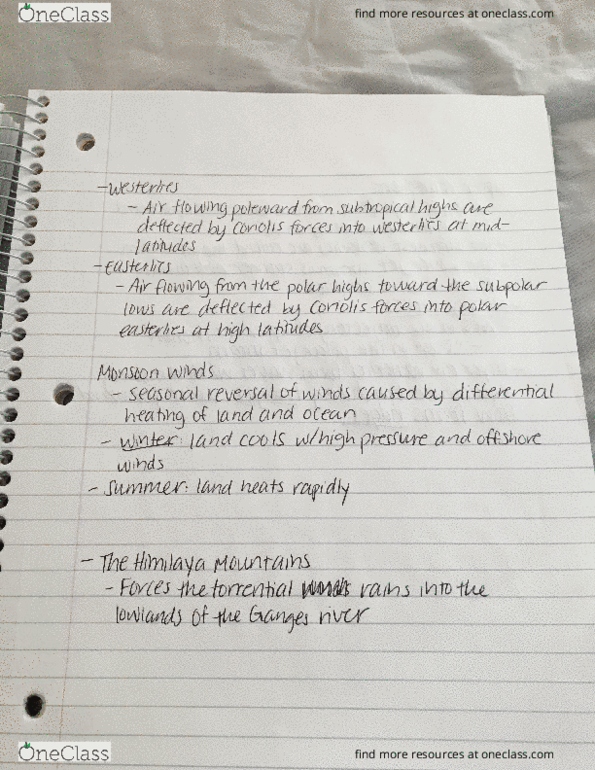 OneClass
find more resources at oneclass.com
- Westerlies
- Air flowing poleward from subtropical highs are
deflected by Coriolis forces into westerlies at mid-
latitudes
- Easterlies
- Air flowing from the polar highs toward the subpolar
lows are deflected by Coriolis forces into polar
easterlies at high latitudes
Monsoon winds
- seasonal reversal of winds caused by differential
heating of land and ocean
- winter: land cools w/high pressure and offshore
winds
- summer: land heats rapidly
- The Himilaya Mountains
- Forces the torrential rains into the
lowlands of the Ganges river
OneClass
find more resources at oneclass.com